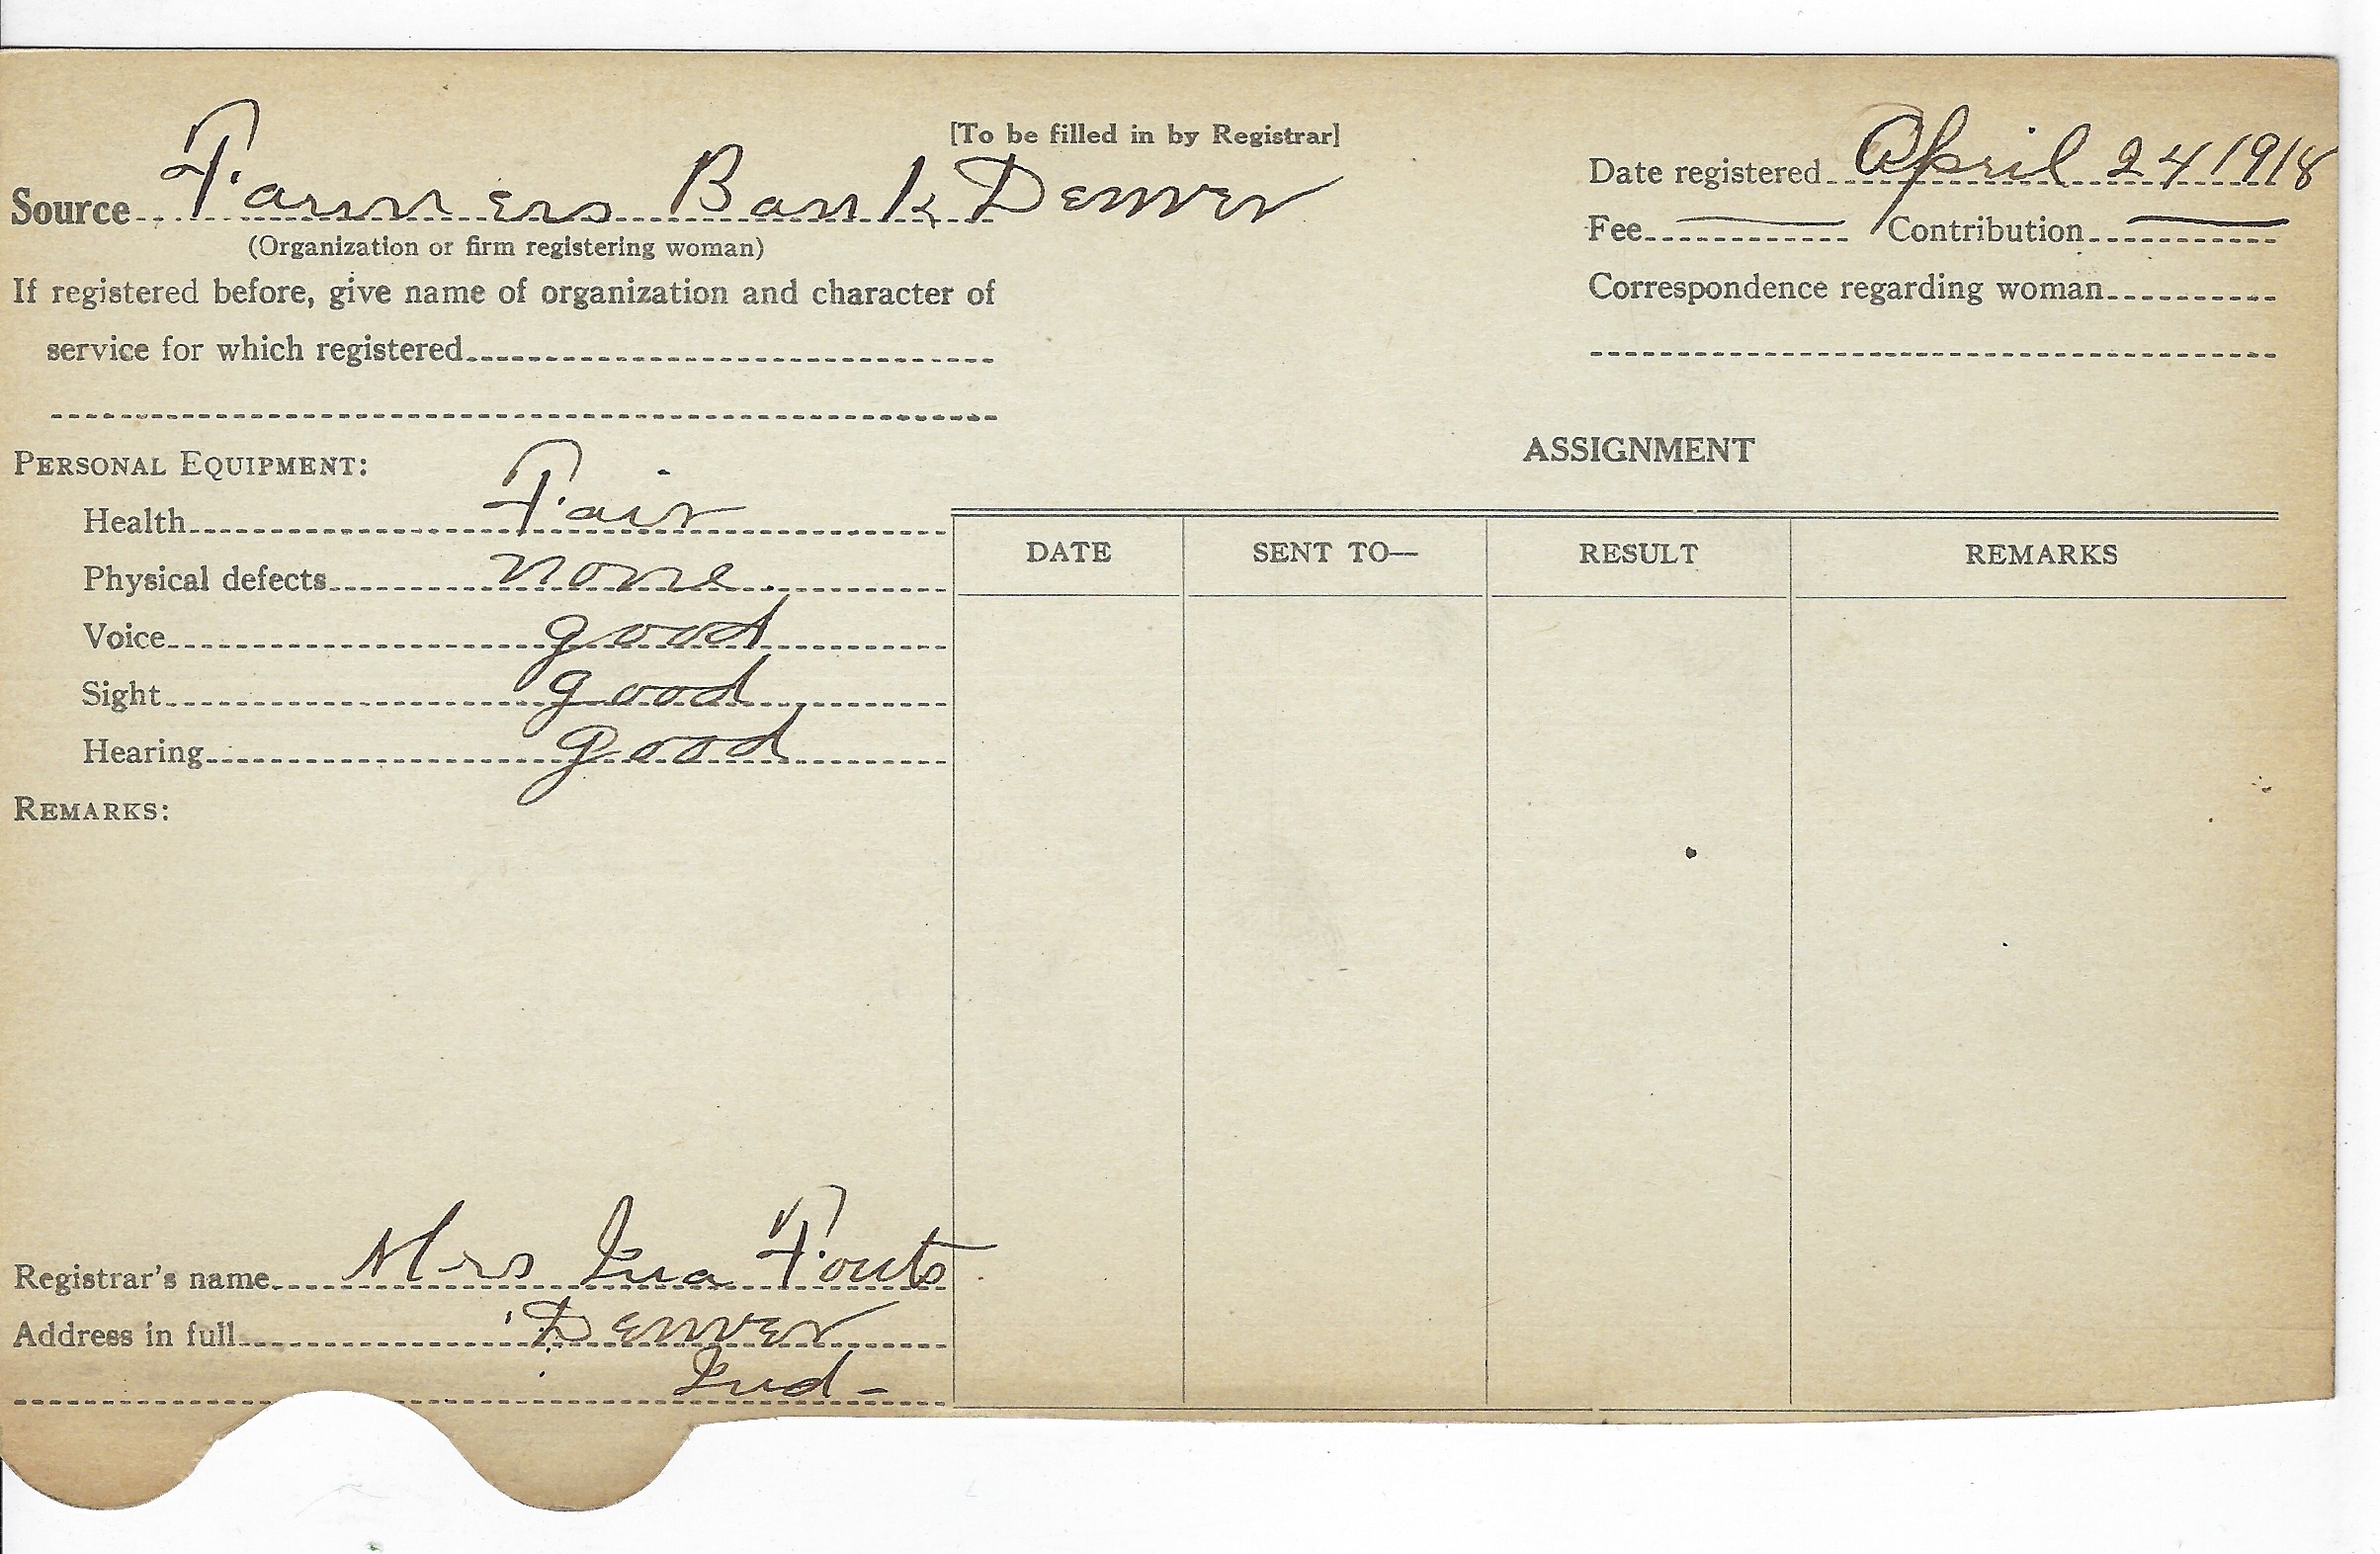 [To be filled in by Registrar]
Source Farmers Bank Denver
(Organization or firm registering woman)
If registered before, give name of organization and character of
service for which registered
Date registered April 24 1918
Fee — Contribution —
Correspondence regarding woman
PERSONAL EQUIPMENT:
Health Fair
Physical defects none.
Voice good
Sight good
Hearing good
REMARKS:
Registrar's name Mrs Iva Fouts
Address in full Denver
Ind-
ASSIGNMENT
DATE SENT TO— RESULT REMARKS